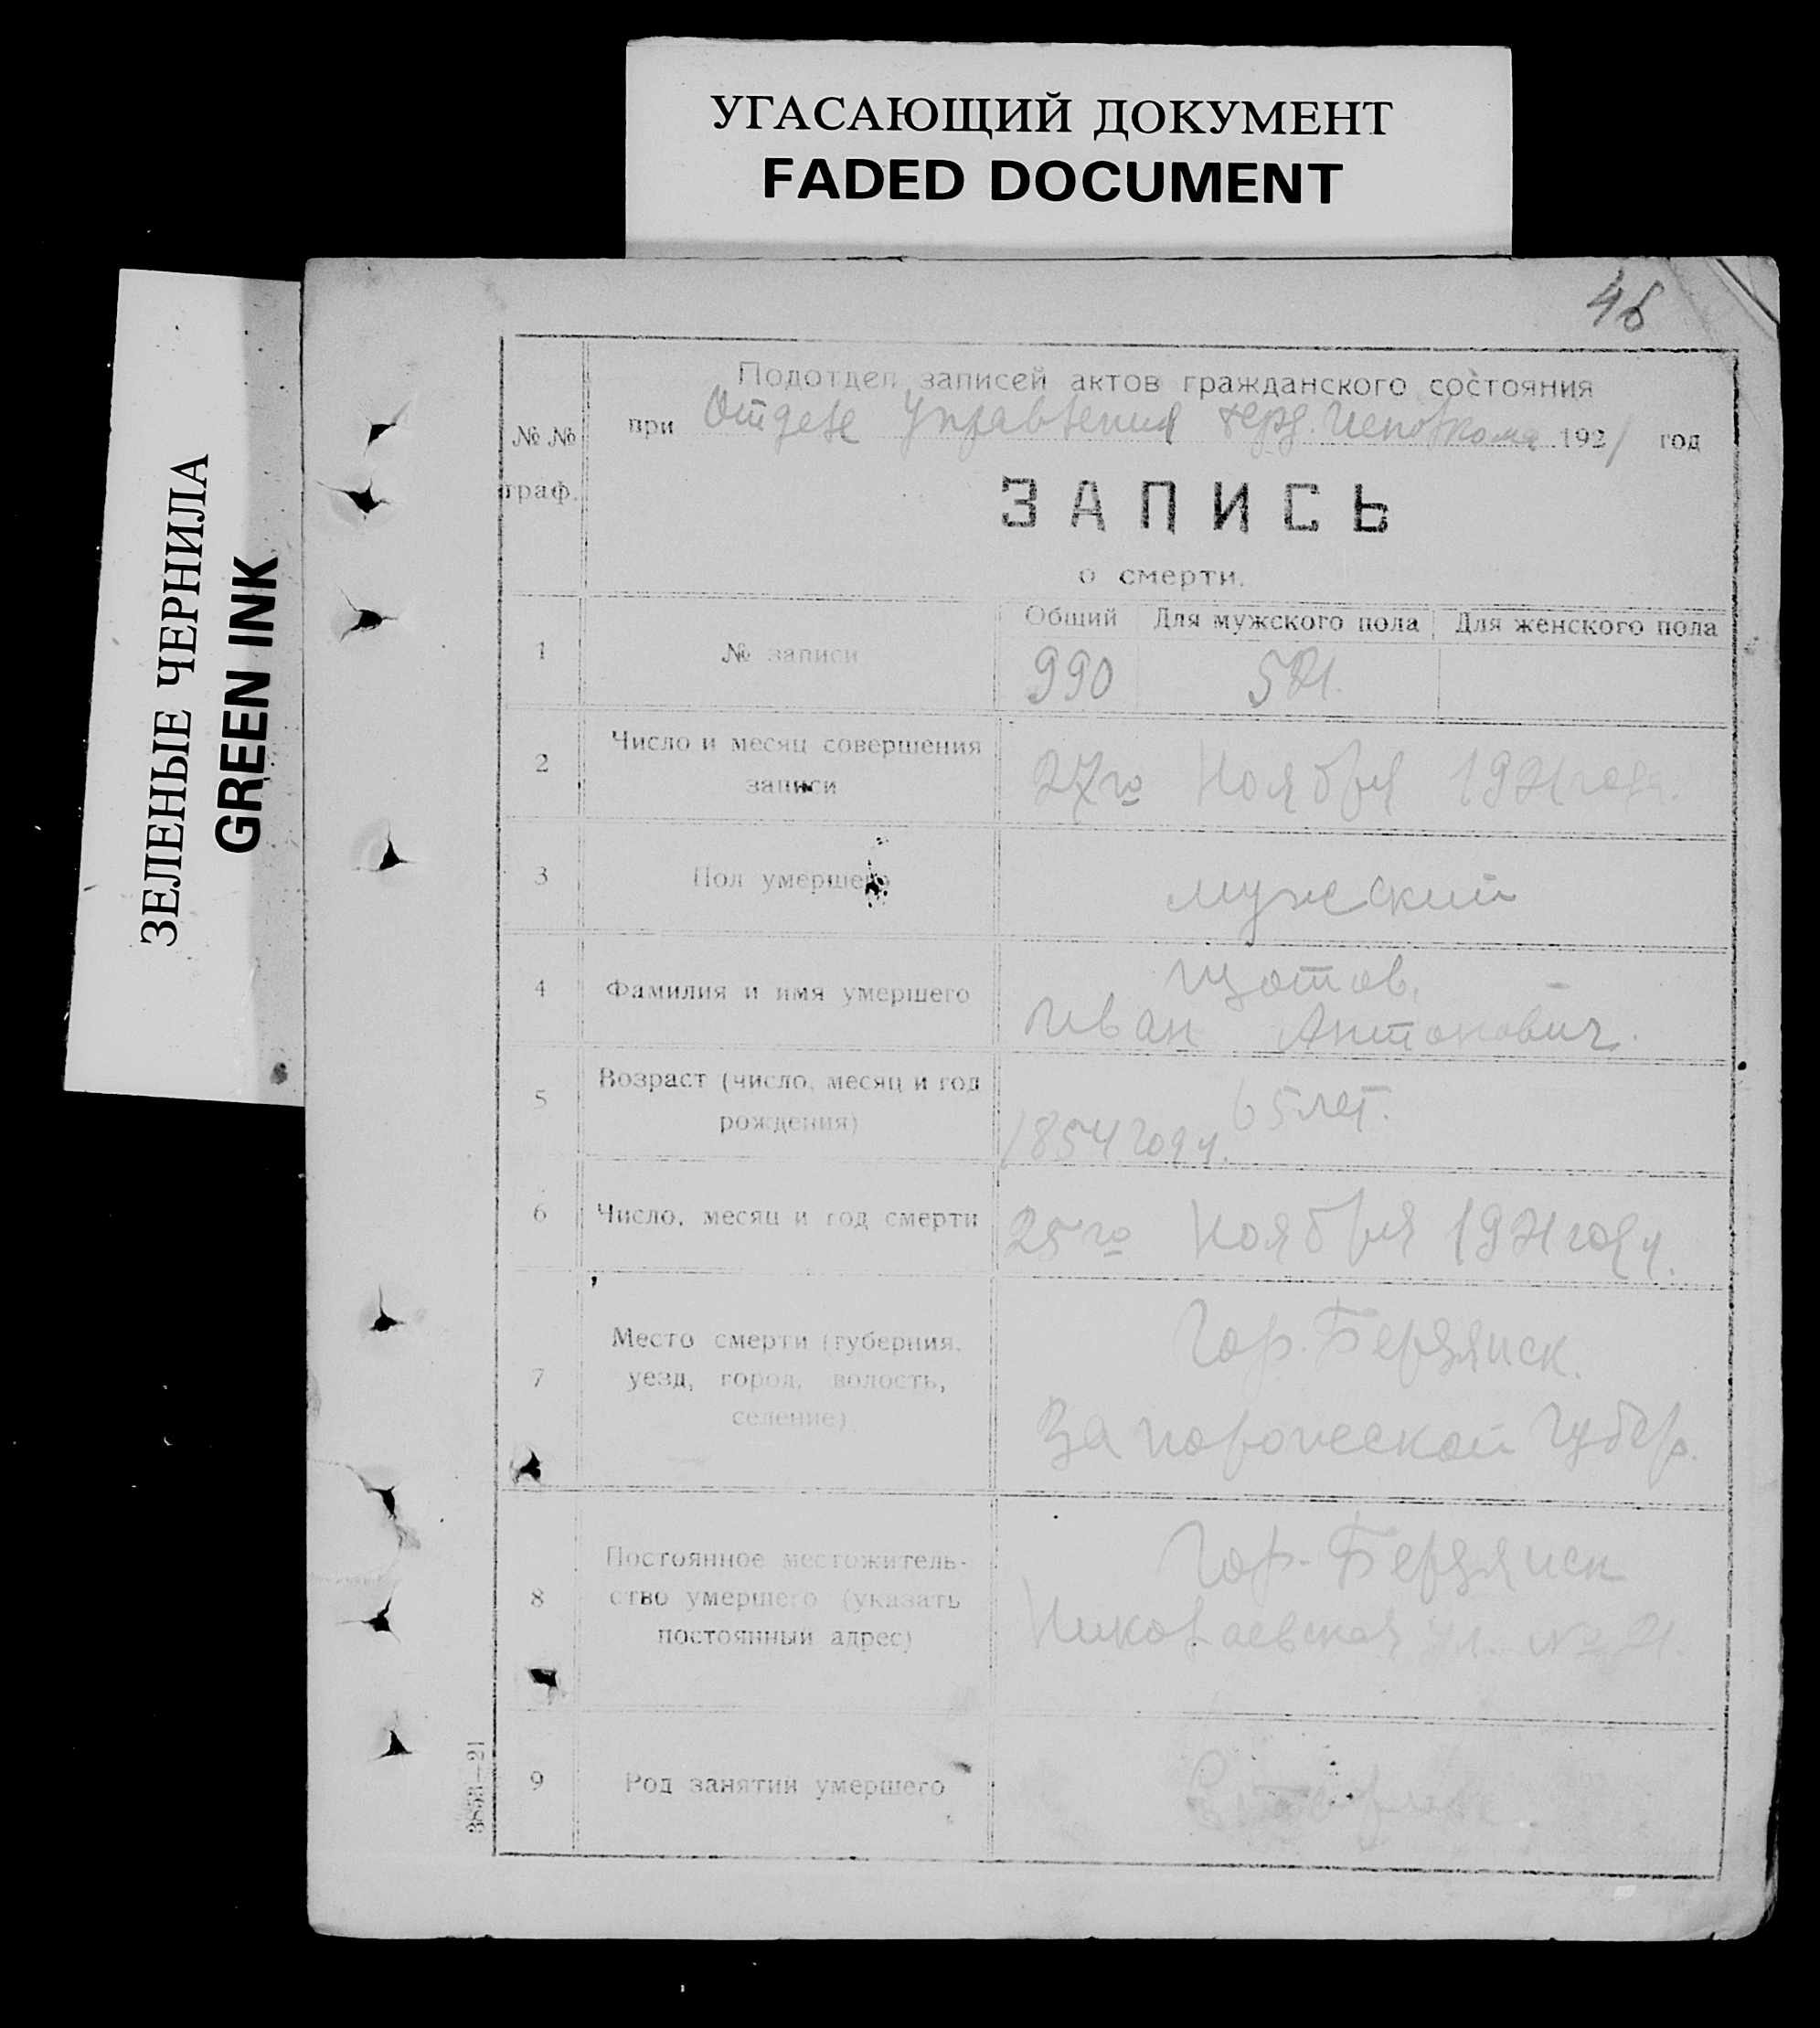 УГАСАЮЩИЙ ДОКУМЕНТ
FADED DOCUMENT
ЗЕЛЕНЫЕ ЧЕРНИЛА
GREEN INK
Подотдел записей актов гражданского состояния
№ № граф.
при Отделе Управления 1921 год
ЗАПИСЬ
о смерти.
Общий Для мужского пола Для женского пола
1 № записи 990
2 Число и месяц совершения
записи 27го Ноября 1921 года.
3 Пол умершего мужской
4 Фамилия и имя умершего
Иван Антонович.
5 Возраст (число, месяц и год
рождения) 65 лет.
1854 году.
6 Число, месяц и год смерти 25го Ноября 1921 году.
7 Место смерти (губерния,
уезд, город, волость,
селение)
Гор. Бердянск.
Запорожской Губер.
8 Постоянное местожитель-
ство умершего (указать
постоянный адрес)
Гор. Бердянск
Николаевская ул. № 21.
9 Род занятий умершего
3853—21